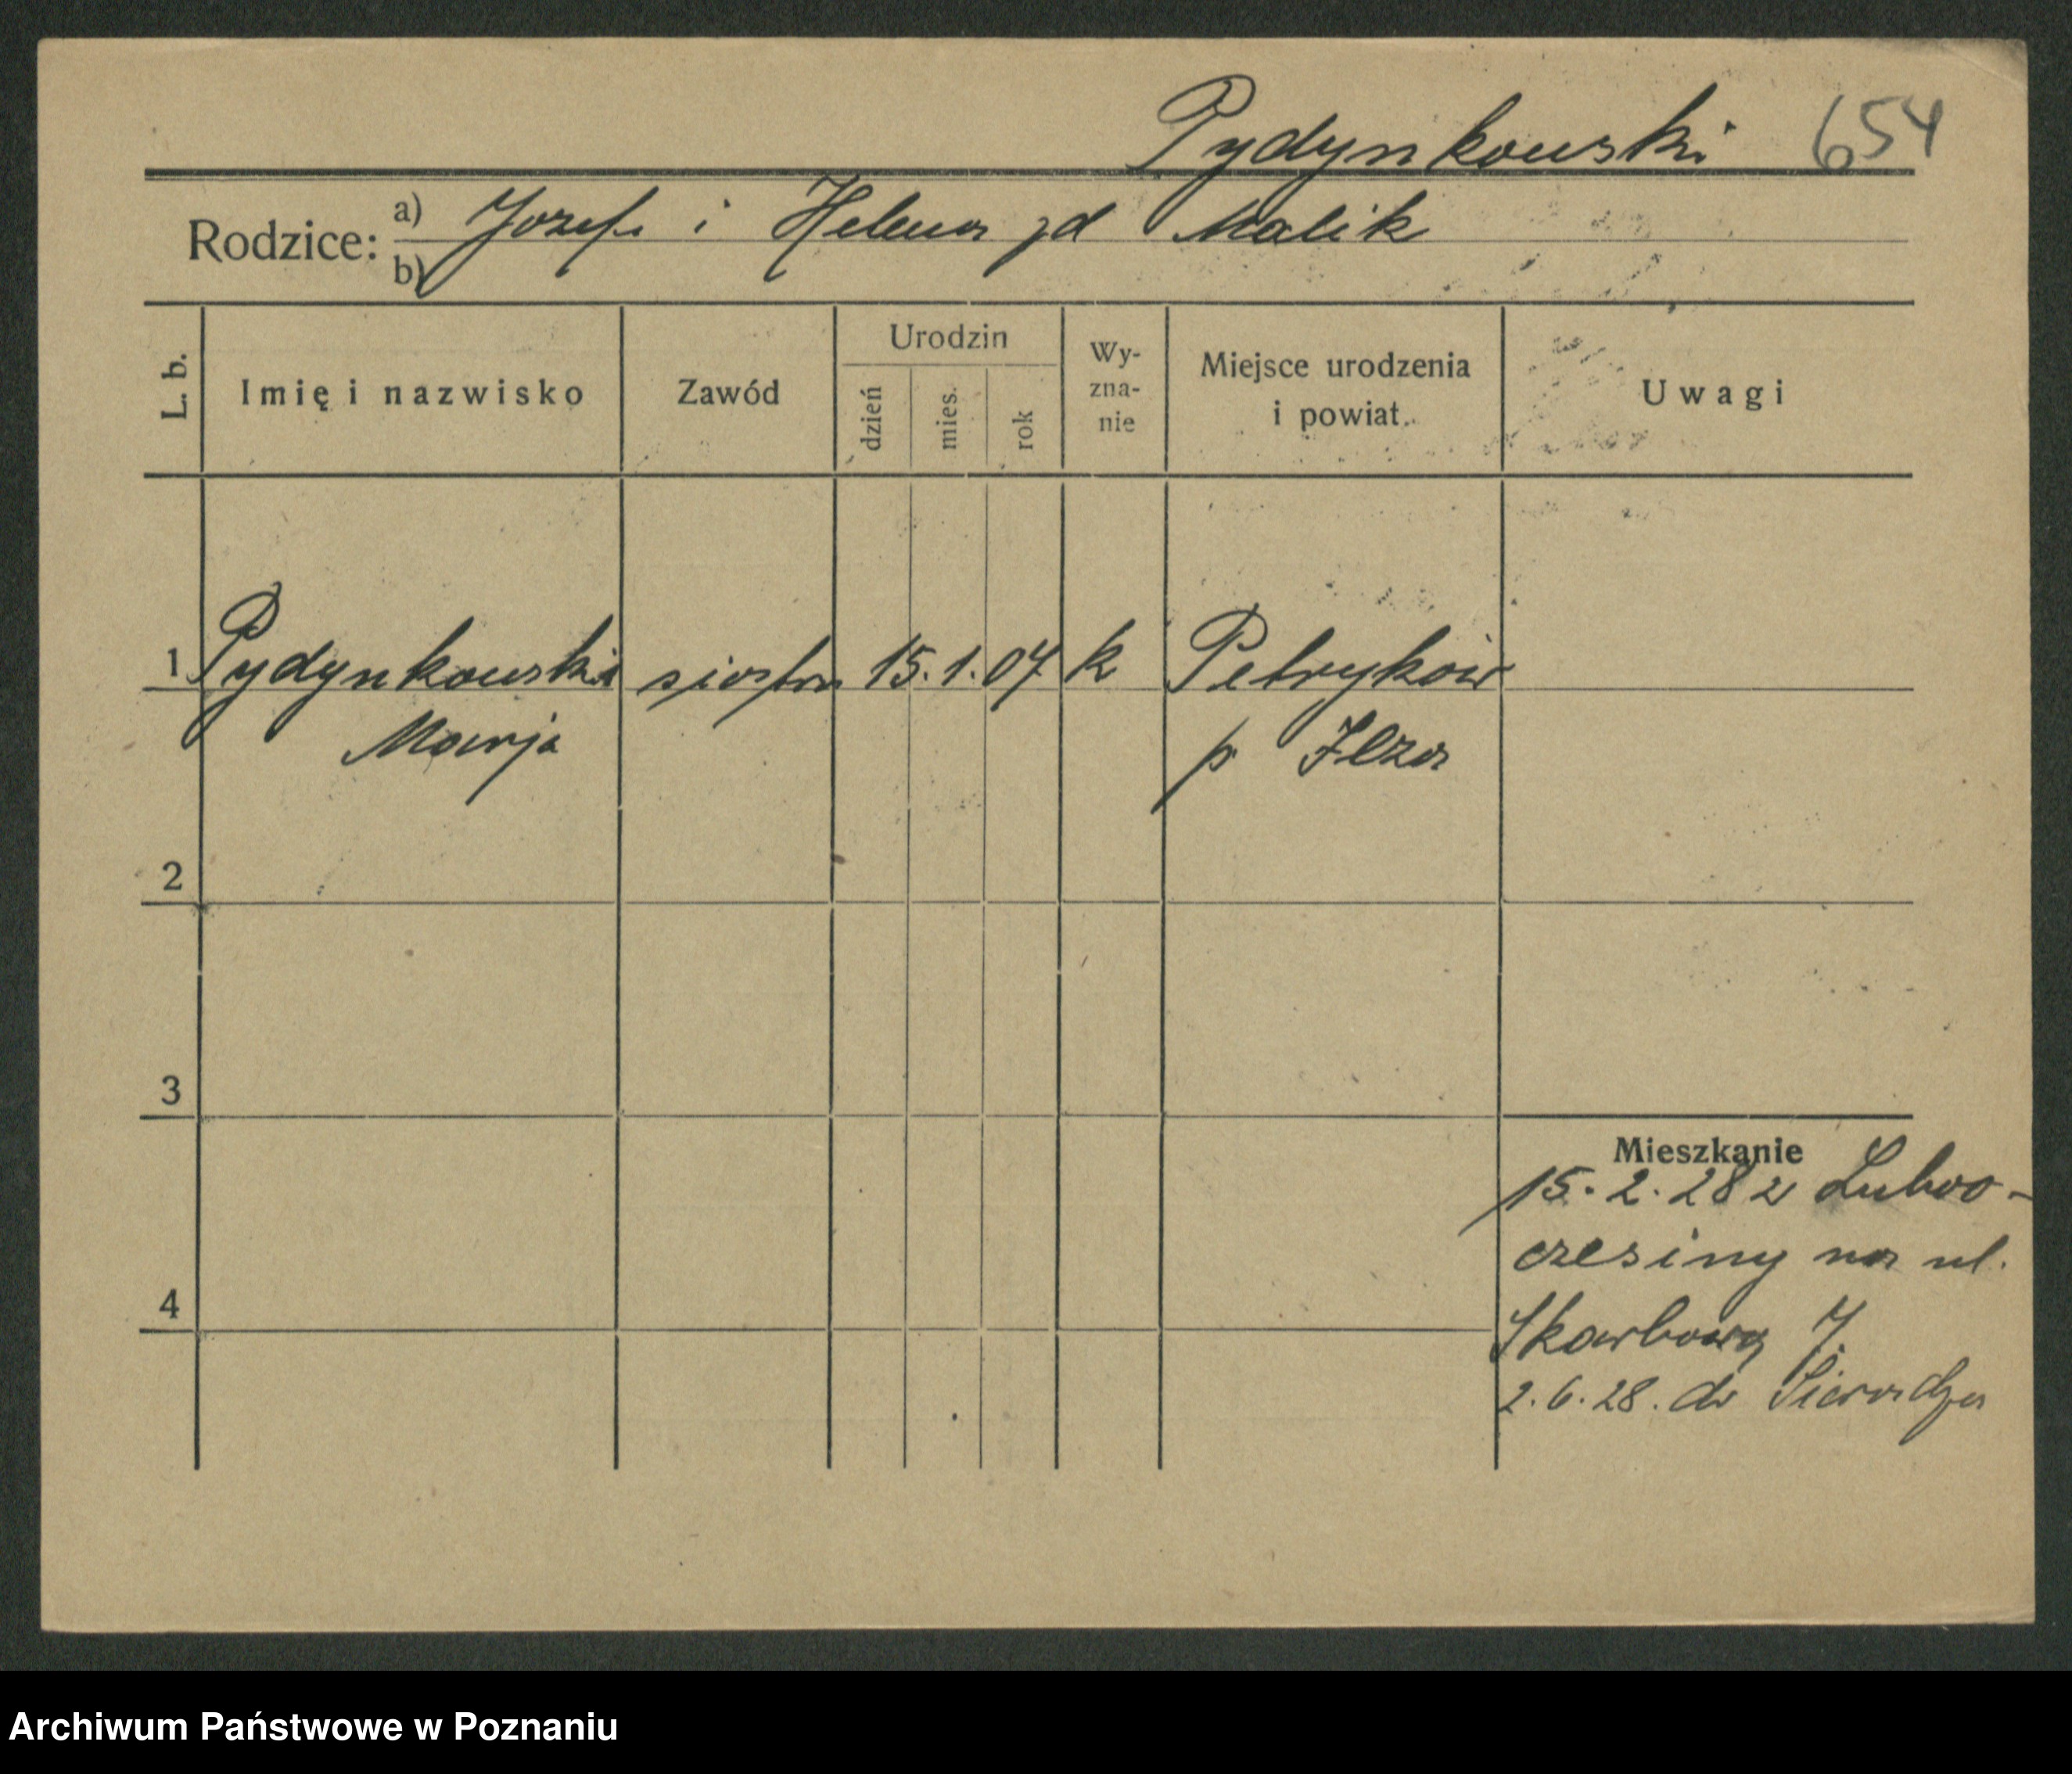 Pydynkowski 654
Rodzice: a) Jozef i Helena zd Malik
b)
L. b. Imię i nazwisko Zawód Urodzin dzień mies. rok Wy-zna-nie Miejsce urodzenia i powiat. Uwagi
1 Pydynkowski siostra 15. 1. 07 k Petryków
Marja p Ilza
2
3
4
Mieszkanie
15. 2. 28 z
czesiny na ul.
Skarbową 7
2. 6. 28. do Sieradza
Archiwum Państwowe w Poznaniu